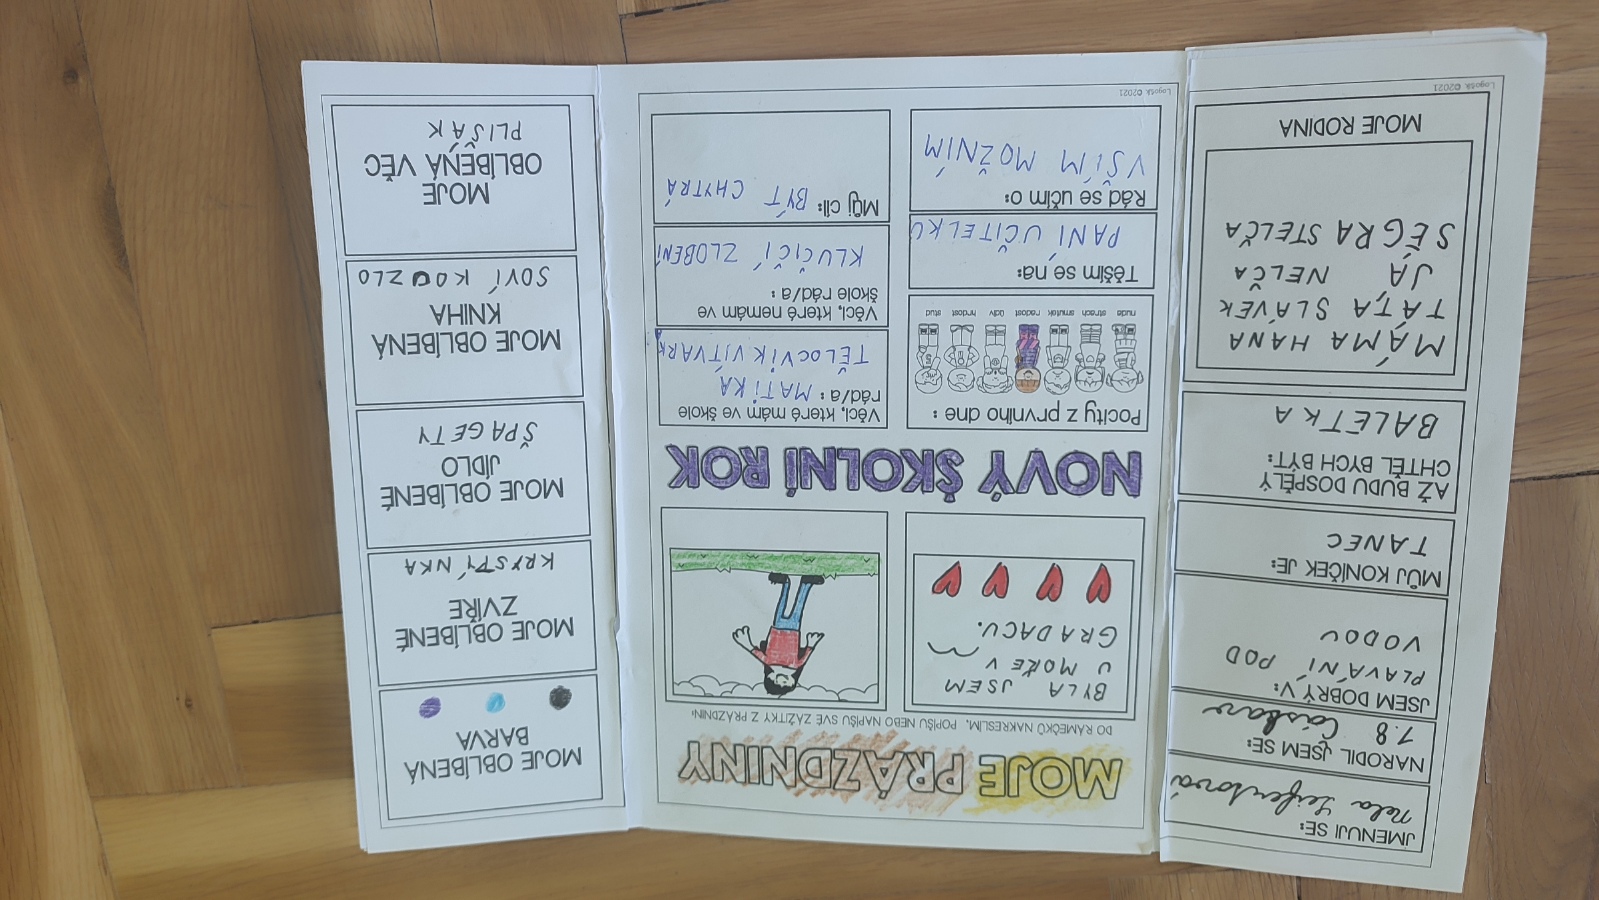 JMENUJI SE:
Nela
NARODIL JSEM SE:
1.8 Čáslav
JSEM DOBRÝ V:
PLAVÁNÍ POD
VODOU
MŮJ KONÍČEK JE:
TANEC
AŽ BUDU DOSPĚLÝ
CHTĚL BYCH BÝT:
BALETKA
MÁMA HANA
TÁTA SLÁVEK
JÁ NELČA
SÉGRA STELČA
MOJE RODINA
Logotik ©2021
MOJE PRÁZDNINY
DO RÁMEČKŮ NAKRESLÍM, POPÍŠU NEBO NAPÍŠU SVÉ ZÁŽITKY Z PRÁZDNIN:
BYLA JSEM
U MOŘE V
GRADACU.
NOVÝ ŠKOLNÍ ROK
Pocity z prvního dne :
nuda strach smutek radost údiv hrdost stud
Těším se na:
PANÍ UČITELKU
Rád se učím o:
VŠÍM MOŽNÍM
Věci, které mám ve škole
rád/a : MATIKA
TĚLOCVIK VITVARKA
Věci, které nemám ve
škole rád/a :
KLUČIČÍ ZLOBENÍ
Můj cíl: BÝT CHYTRÁ
Logotik ©2021
MOJE OBLÍBENÁ
BARVA
MOJE OBLÍBENÉ
ZVÍŘE
KRYSTÝNKA
MOJE OBLÍBENÉ
JÍDLO
ŠPAGETY
MOJE OBLÍBENÁ
KNIHA
SOVÍ KOUZLO
MOJE
OBLÍBENÁ VĚC
PLIŠÁK